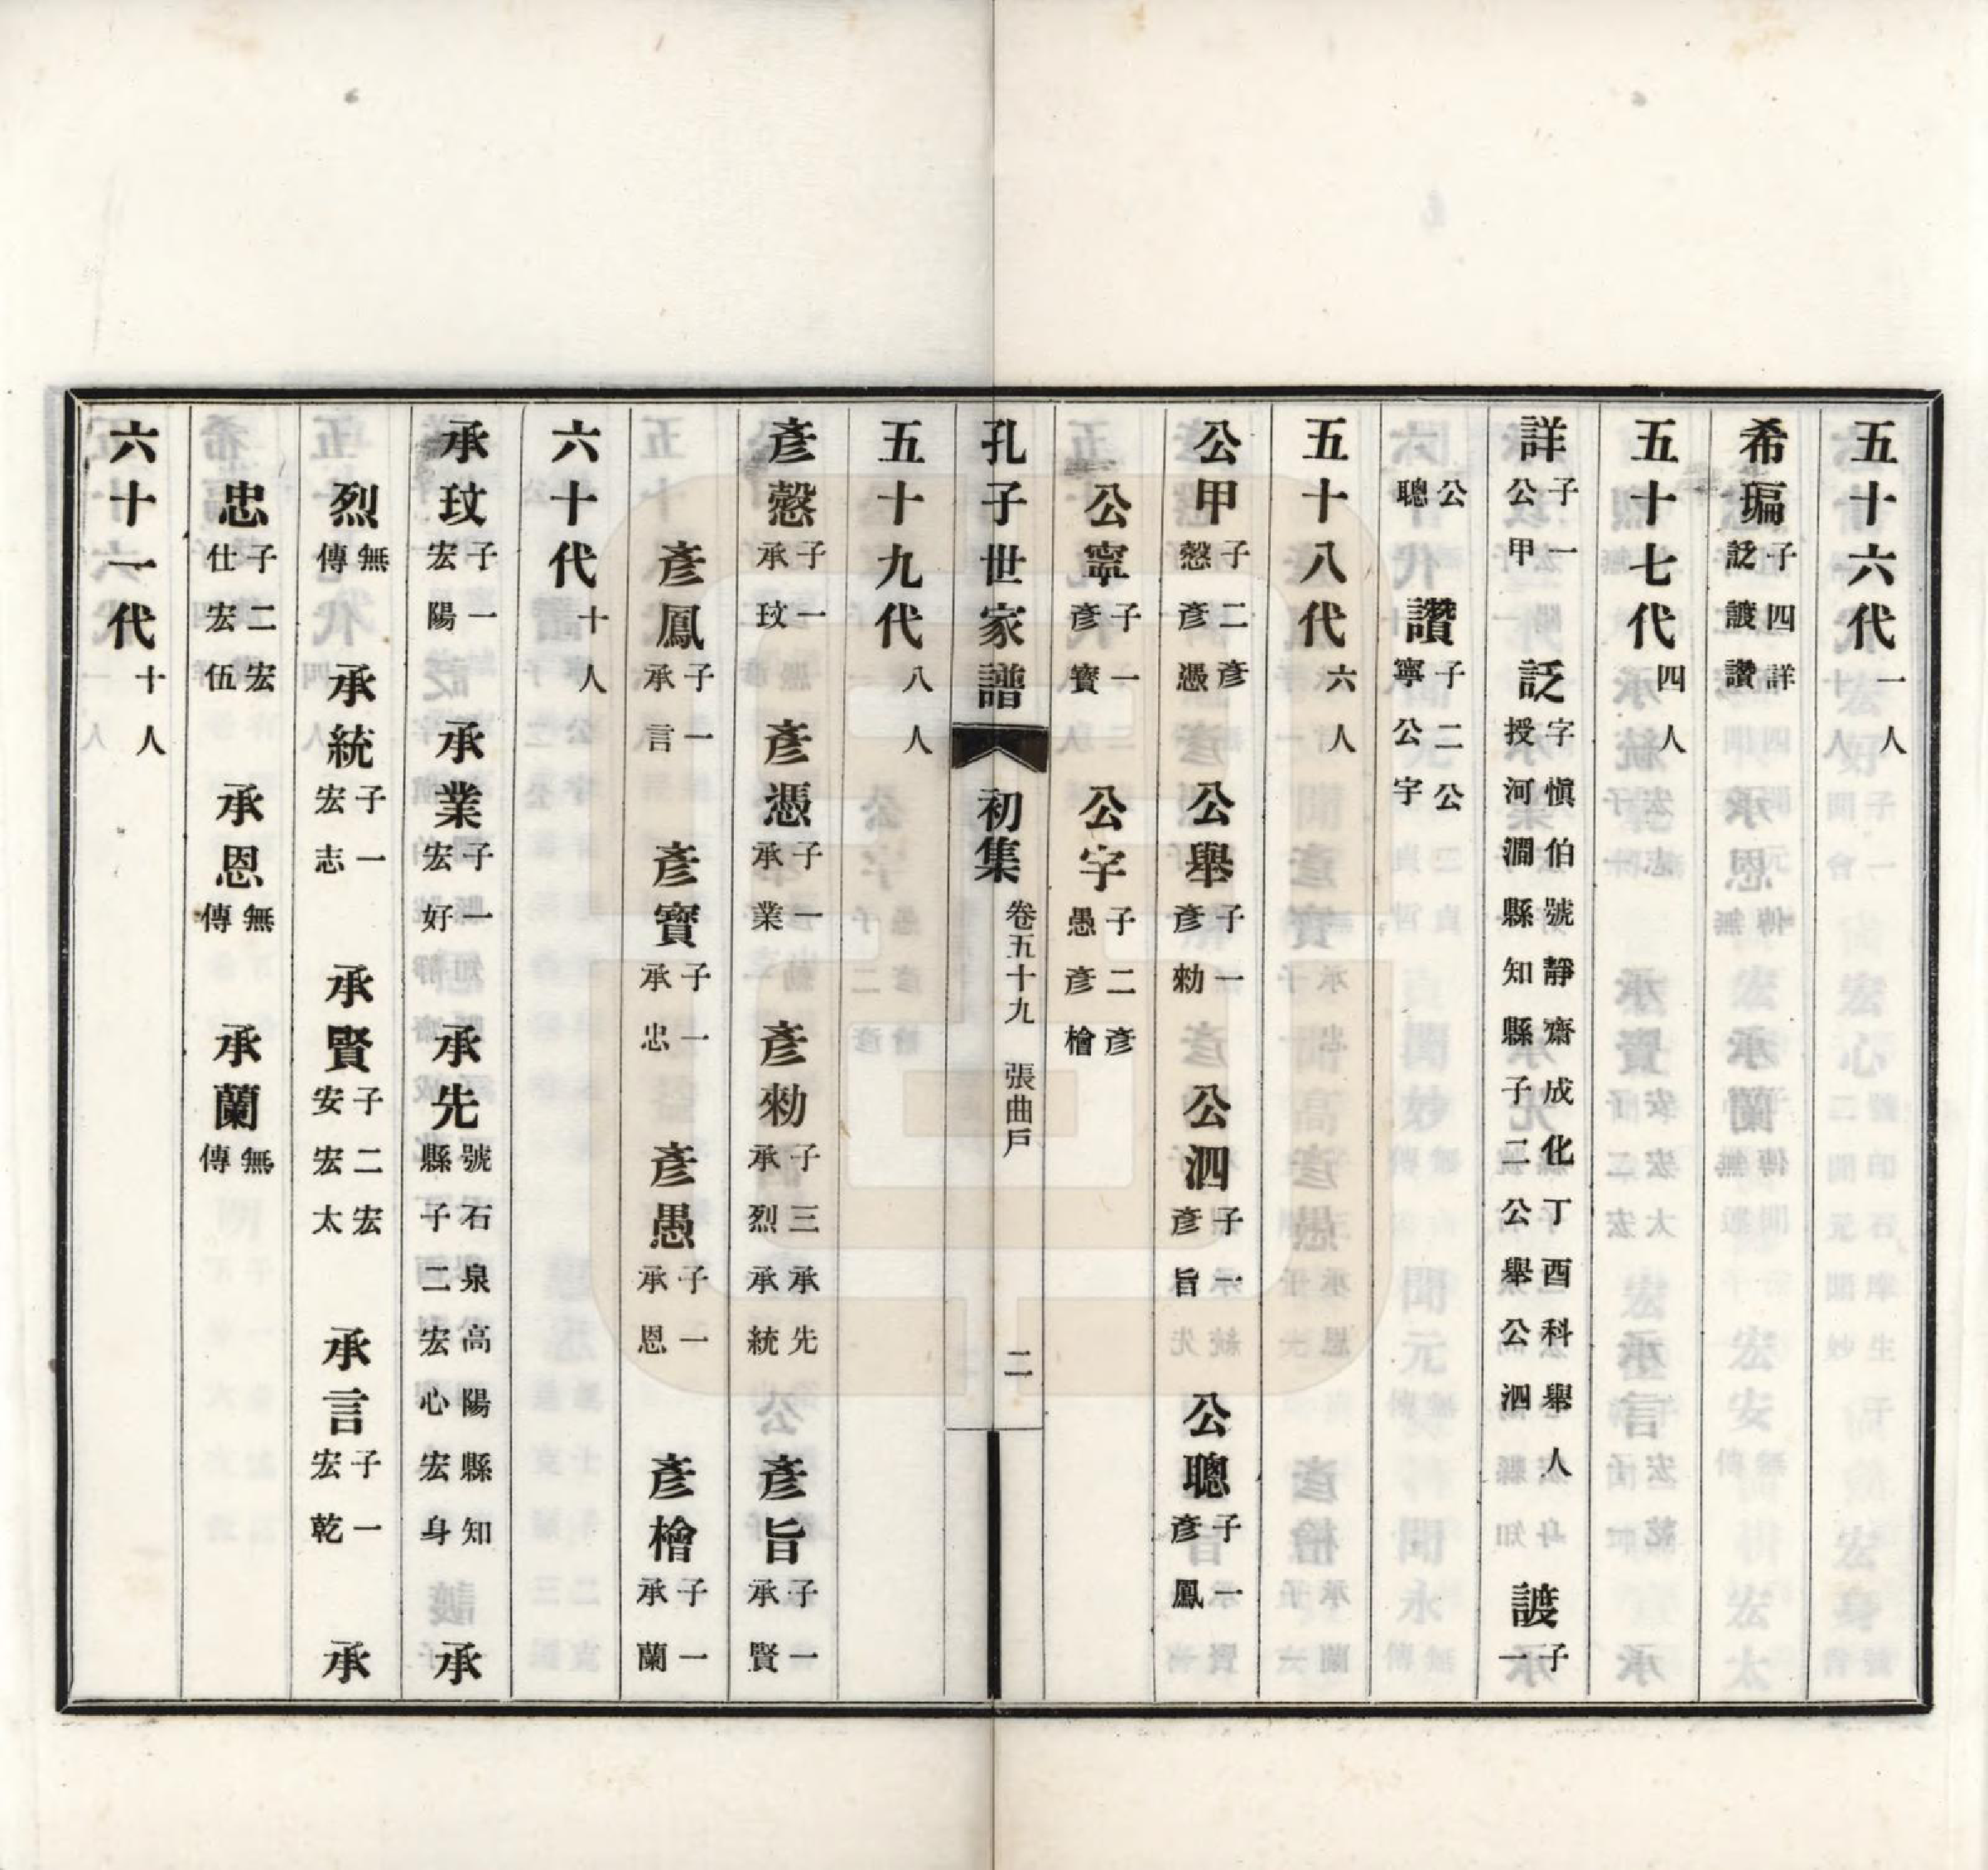 五十六代一人
希㻞子四詳訯謢讚
五十七代四人
詳子一公甲 訯字愼伯號靜齋成化丁酉科舉人授河澗縣知縣子二公舉公泗 謢子一
公聰 讚子二公寧公字
五十八代六人
公甲子二彥慤彥憑 公舉子一彥勑 公泗子一彥旨 公聰子一彥鳳
公寧子一彥寶 公字子二彥愚彥檜
孔子世家譜 初集 卷五十九 張曲戶 二
五十九代八人
彥慤子一承玟 彥憑子一承業 彥勑子三承先承烈承統 彥旨子一承賢
彥鳳子一承言 彥寶子一承忠 彥愚子一承恩 彥檜子一承蘭
六十代十人
承玟子一宏陽 承業子一宏好 承先號石泉高陽縣知縣子二宏心宏身 承
烈無傳 承統子一宏志 承賢子二宏安宏太 承言子一宏乾 承
忠子二宏仕宏伍 承恩無傳 承蘭無傳
六十一代十人